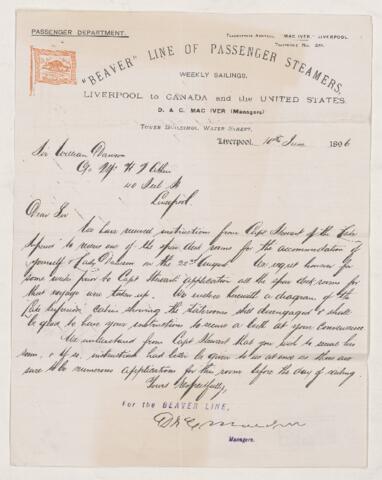 PASSENGER DEPARTMENT.
TELEGRAPHIC ADDRESS, "MAC IVER", LIVERPOOL.
TELEPHONE No.
"BEAVER" LINE OF PASSENGER STEAMERS,
WEEKLY SAILINGS.
LIVERPOOL to CANADA and the UNITED STATES.
D. & C. MAC IVER (Managers)
TOWER BUILDINGS, WATER STREET,
Liverpool, 10th June 1896
Sir William Dawson
40
Liverpool.
Dear Sir
We have received instructions from Capt Stewart of the "Lake
Superior" to reserve one of the spar deck rooms for the accommodation of
yourself & Lady Dawson on the 22nd August. We regret however for
some weeks prior to Capt Stewart's application all the spar deck rooms for
that voyage are taken up. We enclose herewith a diagram of the
Lake Superior's cabin showing the staterooms still disengaged & should
be glad to have your instructions to reserve a berth at your convenience
We understand from Capt Stewart that you wish to secure his
room, & if so, instructions had better be given to us at once as there are
sure to be numerous applications for this room before the day of sailing.
Yours respectfully,
For the BEAVER LINE,
D & C MacIver
Managers.